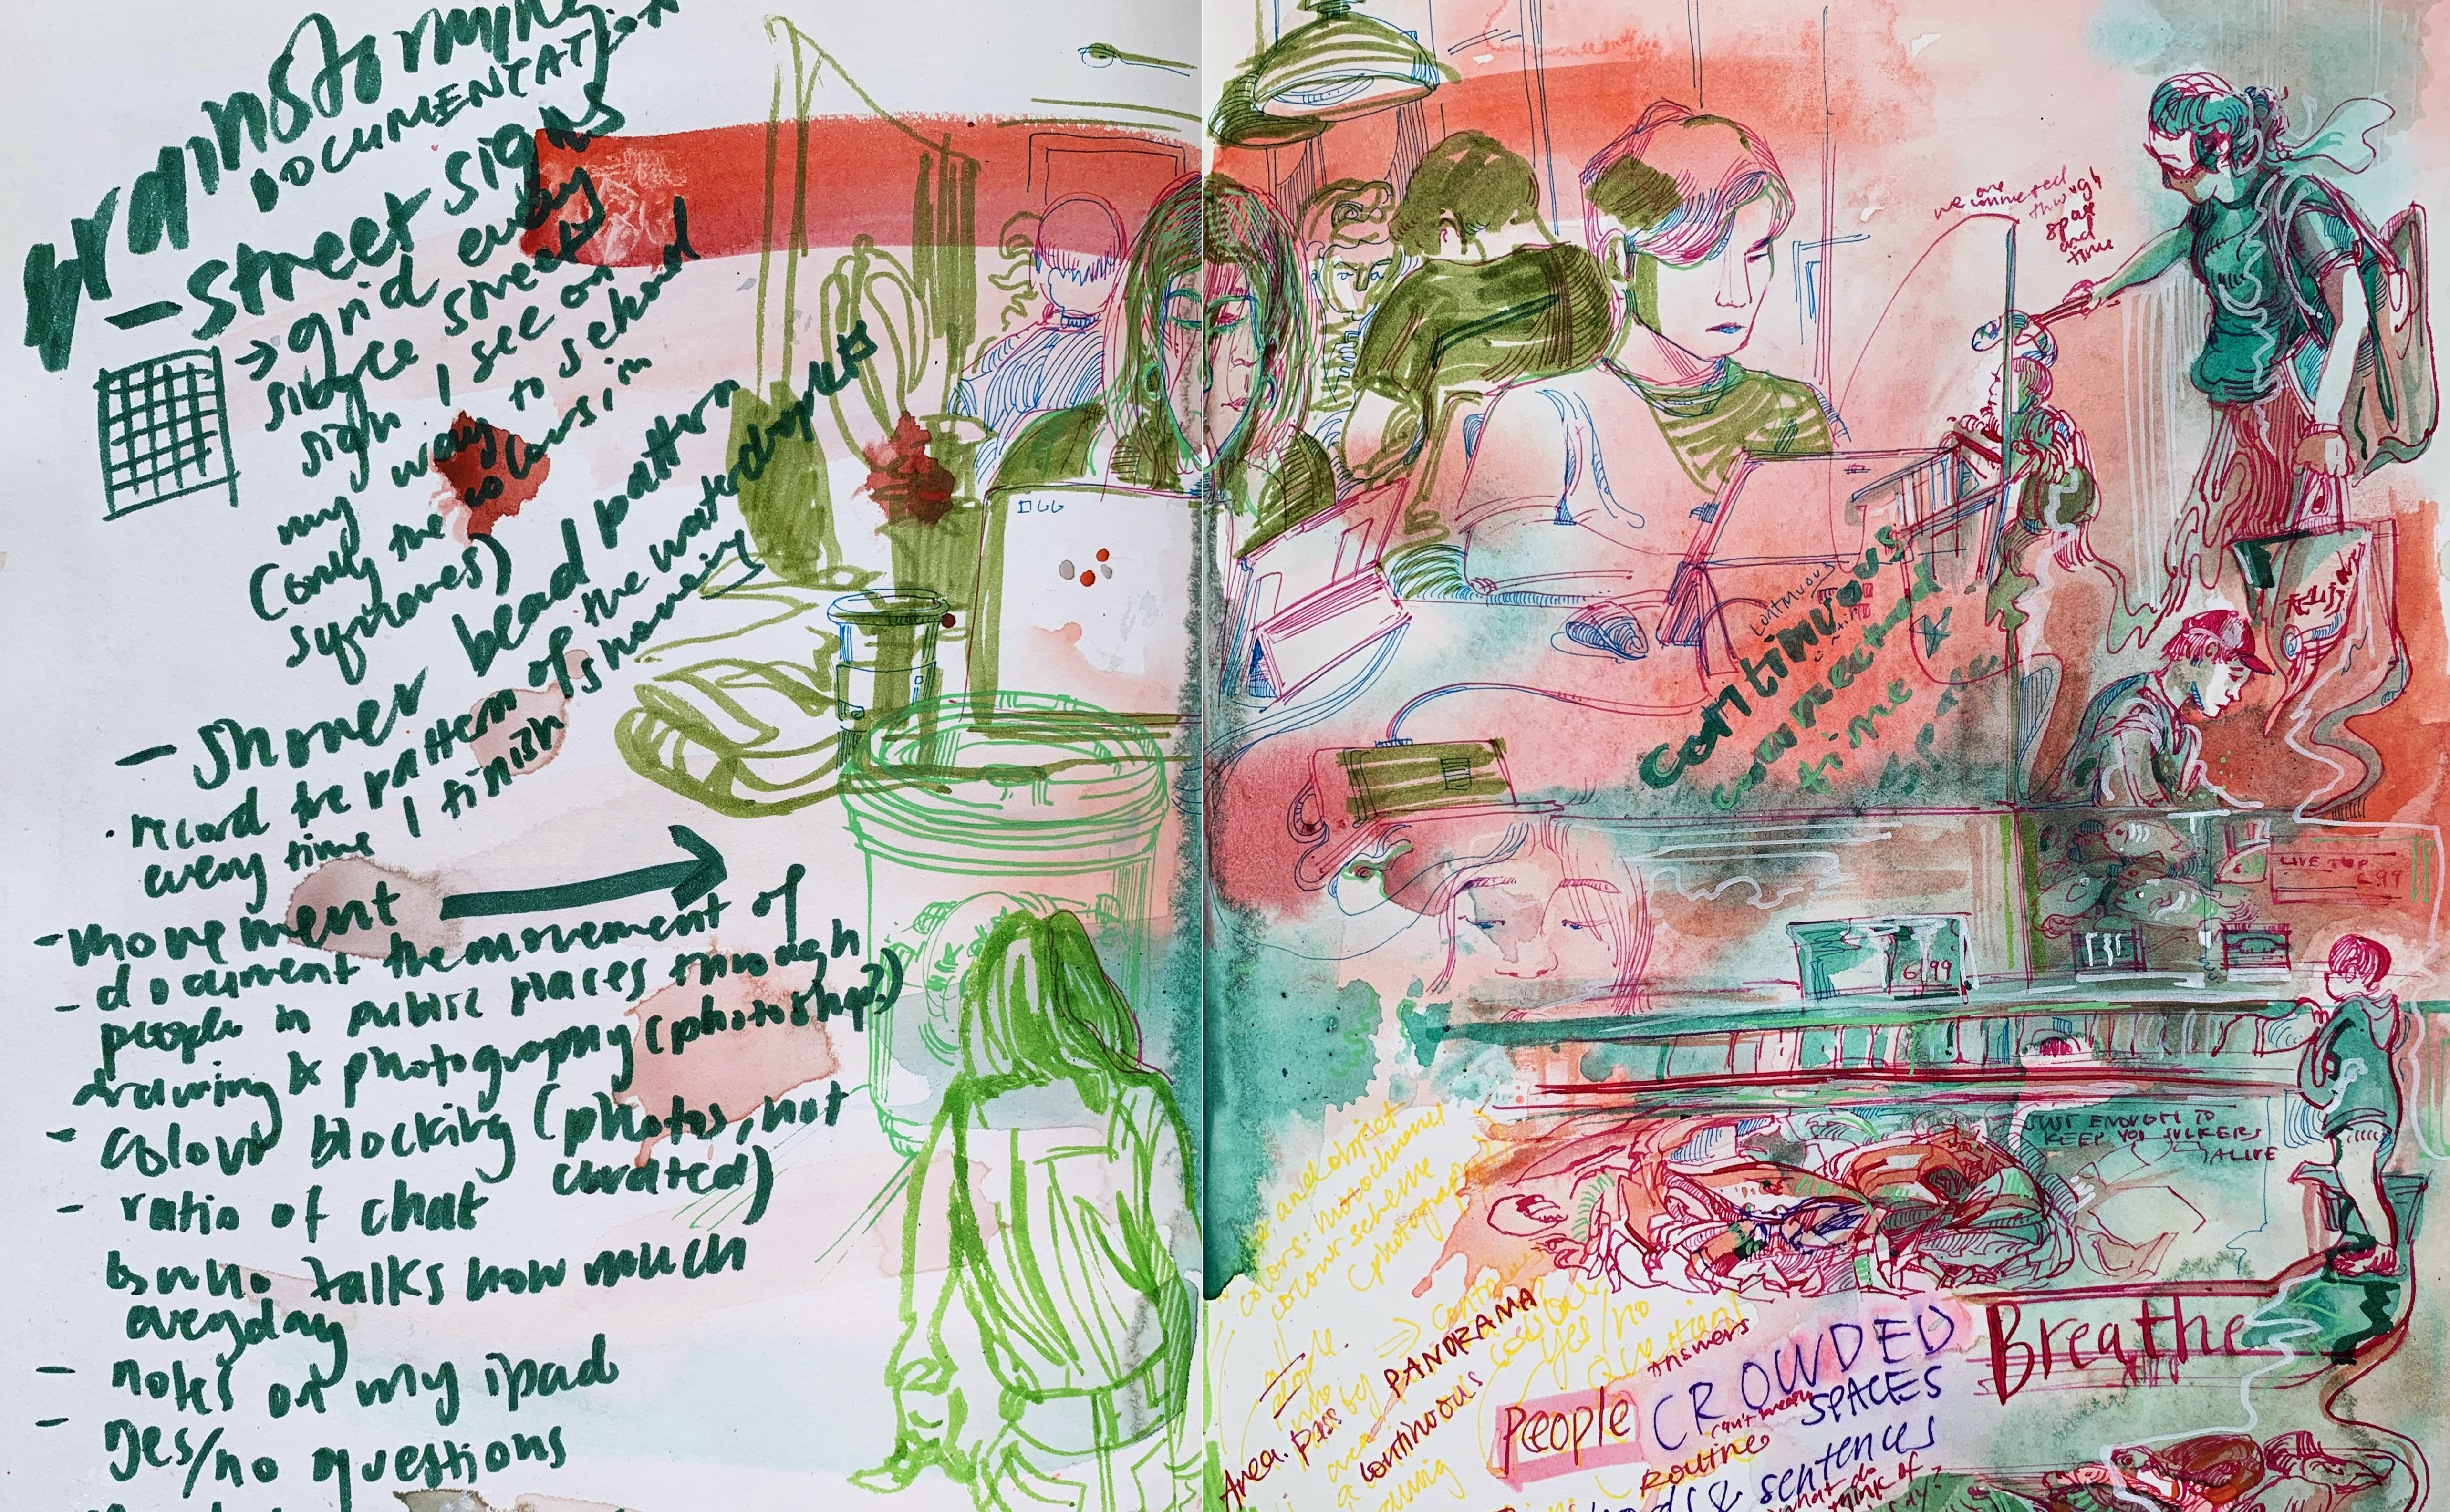 Brainstorming
DOCUMENTATION
- street signs
→ grid every
since street
sign I see on
my way to school
(only the colours in
squares)
- shower bead pattern
· record the pattern of the waterdroplets
every time I finish showering
- movement
- document the movement of
people in public places through
drawing & photography (photoshop?)
- colour blocking (photos, not
curated)
- ratio of chat
who talks how much
everyday
- notes on my ipad
- yes/no questions
we are
connected
through
space
and
time
continuous
continuous
connected
time &
space
LIVE
6.99
6.99
JUST ENOUGH TO
KEEP YOU SUCKERS
ALIVE
and object
colors: monochrome
colour scheme
(photography)
all
people
into
Area. pass by
PANORAMA
continuous
yes/no
question
answers
People
CROWDED
SPACES
can't
Routine
Breathe
words & sentences
what do
think of